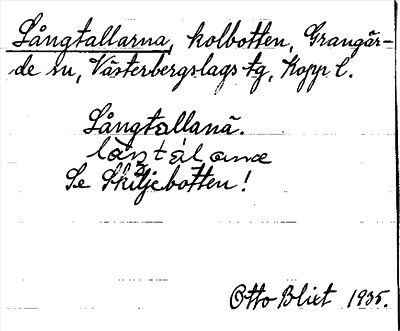 Långtallarna, kolbotten, Grangär-
de sn, Västerbergslags tg, Kopp l.
Långtallanä.
låŋtálanæ
Se Skiljebotten!
Otto Blixt 1935.